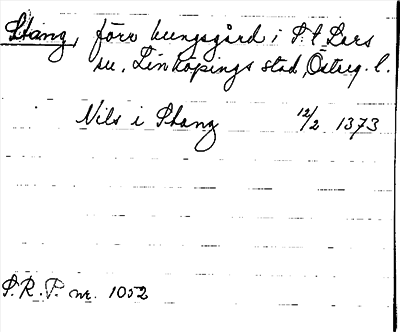 Stang, förr kungsgård i S:t Lars
sn, Linköpings stad, Österg. l.
Nils i Stang 12/2 1373
S.R.P. nr. 1052